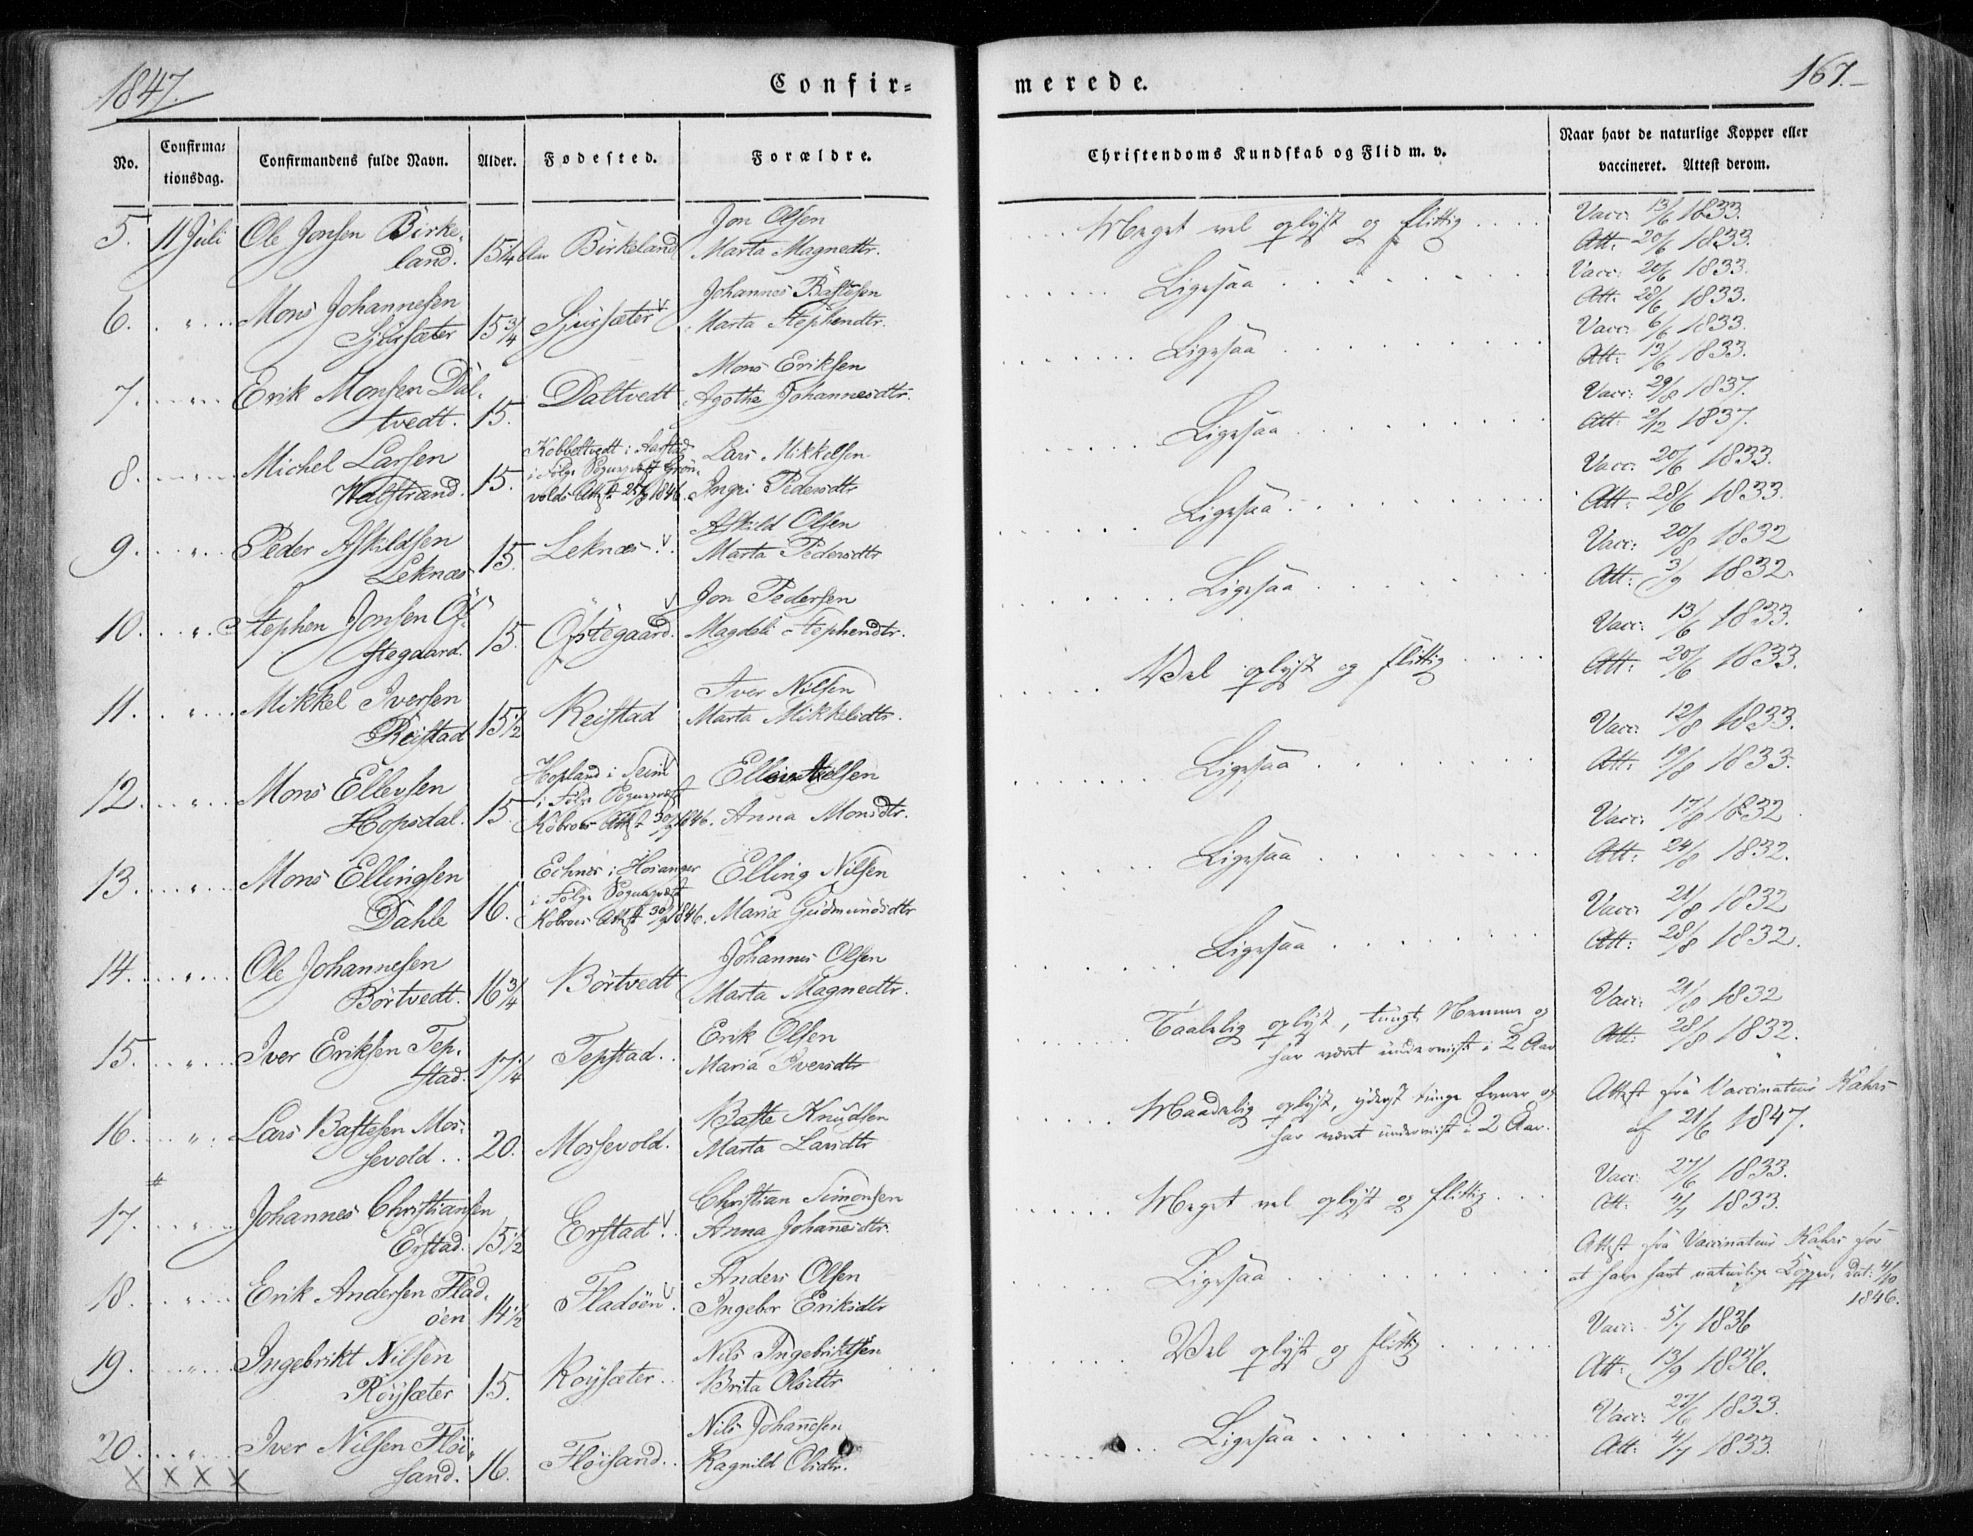 1847.
Confir=
merede.
167.
No.
Confirma=
tionsdag.
Confirmandens fulde Navn.
Alder.
Fødested.
Forældre.
Christendoms Kundskab og Flid m. v.
Naar havt de naturlige Kopper eller
vaccineret. Attest derom.
5. 11 Juli Ole Jonsen Birke-
land. 15 1/4 Aar Birkeland
Jon Olsen
Marta Magnedtr.
Meget vel oplyst og flittig
Vacc: 13/6 1833.
Att: 20/6 1833.
6. " Mons Johannesen
Sjursæter 15 3/4 Sjursæter
Johannes Bastesen
Marta Stephendtr.
Ligesaa
Vacc: 20/6 1833.
Att: 28/6 1833.
7. " Erik Monsen Dal-
tvedt. 15. Daltvedt
Mons Eriksen
Agotha Johannesdtr.
Ligesaa
Vacc: 6/6 1833.
Att: 13/6 1833.
8. " Michel Larsen
Walstrand. 15.
Kobbeltvedt i Aarstad
i Følge Sognepræst Grøn-
volds Attest 1846.
Lars Mikkelsen
Ingri Pedersdtr
Ligesaa
Vacc: 29/8 1837.
Att: 2/12 1837.
9. " Peder Askildsen
Leknæs 15. Leknæs
Askild Olsen
Marta Pedersdtr
Ligesaa
Vacc: 20/6 1833.
Att: 28/6 1833.
10. " Stephen Jonsen Øf-
stegaard. 15. Øfstegaard.
Jon Pedersen
Magdeli Stephendtr.
Ligesaa
Vacc: 20/8 1832
Att: 3/9 1832.
11. " Mikkel Iversen
Reistad 15 1/2 Reistad
Iver Nilsen
Marta Mikkelsdtr.
Vel oplyst og flittig
Vacc: 13/6 1833.
Att: 20/6 1833.
12. " Mons Ellevsen
Hopsdal. 15.
Hopland i Seim
i Følge Sognepræst
Attest 1846.
Anna Monsdtr.
Ligesaa
Vacc: 12/8 1833.
Att: 19/8 1833.
13. " Mons Ellingsen
Dahle 16.
Echnes i Hosanger
i Følge Sognepræst
Attest 1846.
Elling Nilsen
Maria Gudmundsdtr
Ligesaa
Vacc: 17/8 1832
Att: 24/8 1832.
14. " Ole Johannesen
Börtvedt. 16 3/4 Börtvedt
Johannes Olsen
Marta Magnedtr.
Ligesaa
Vacc: 21/8 1832
Att: 28/8 1832.
15. " Iver Eriksen Tep-
stad. 17 1/4 Tepstad.
Erik Olsen
Maria Iversdtr
Taalelig oplyst, tungt Nemme og
har været underviist i 2 Aar
Vacc: 21/8 1832
Att: 28/8 1832.
16. " Lars Bastesen Mos-
sevold. 20. Mossevold.
Baste Knudsen
Marta Larsdtr
Maadelig oplyst, yderst tunge Evner og
har været underviist i 2 Aar.
Attest fra Vaccinateur Kahrs
af 21/6 1847.
17. " Johannes Christiansen
Erstad. 15 1/2 Erstad
Christian Simonsen
Anna Johannesdtr.
Meget vel oplyst og flittig
Vacc: 27/6 1833.
Att: 4/7 1833.
18. " Erik Andersen Flad-
öen 14 1/2 Fladöen
Anders Olsen
Ingebor Eriksdtr
Ligesaa
Attest fra Vaccinateur Kahrs for
at have havt naturlige Kopper, dat: 4/10
1846.
19. " Ingebrikt Nilsen
Röysæter 15. Röysæter
Nils Ingebriktsen
Brita Olsdtr
Vel oplyst og flittig
Vacc: 5/7 1836
Att: 13/9 1836.
20. " Iver Nilsen Flöi-
sand. 16. Flöisand.
Nils Johannesen
Ragnild Olsdtr.
Ligesaa
Vacc: 27/6 1833.
Att: 4/7 1833.
X X X X